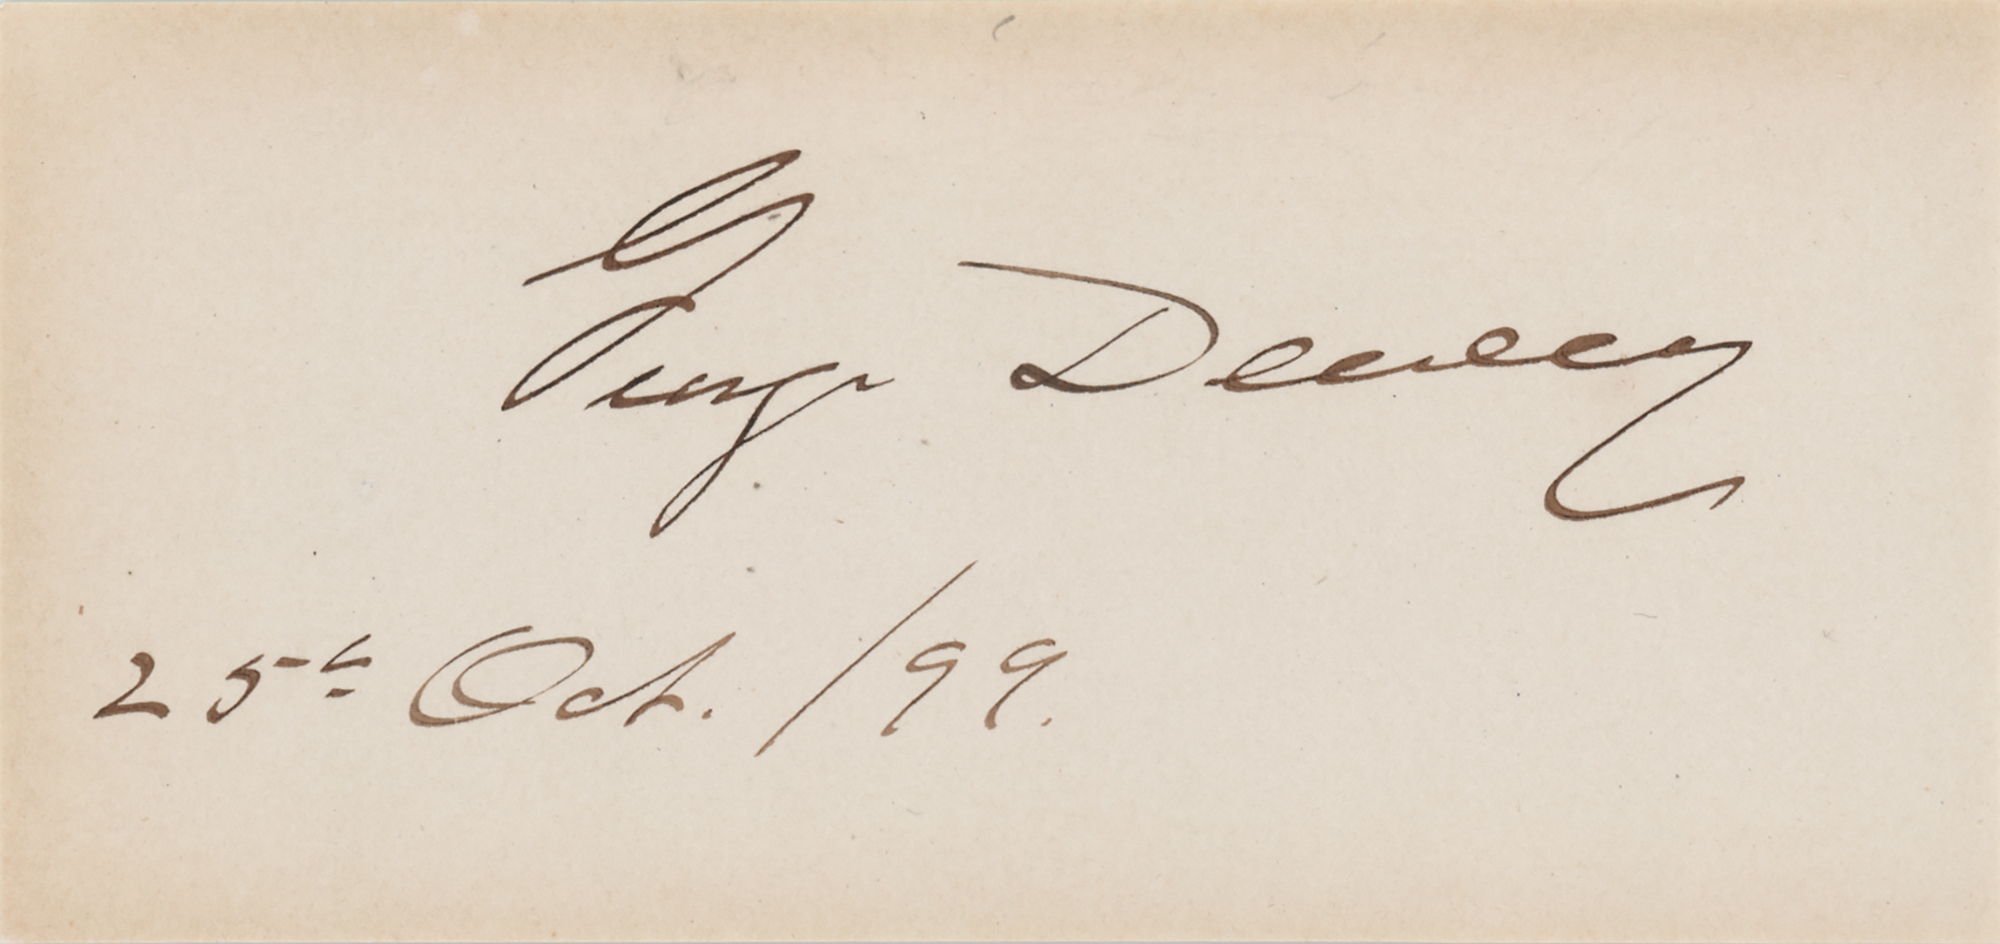 George Dewey
25th Oct. /99.